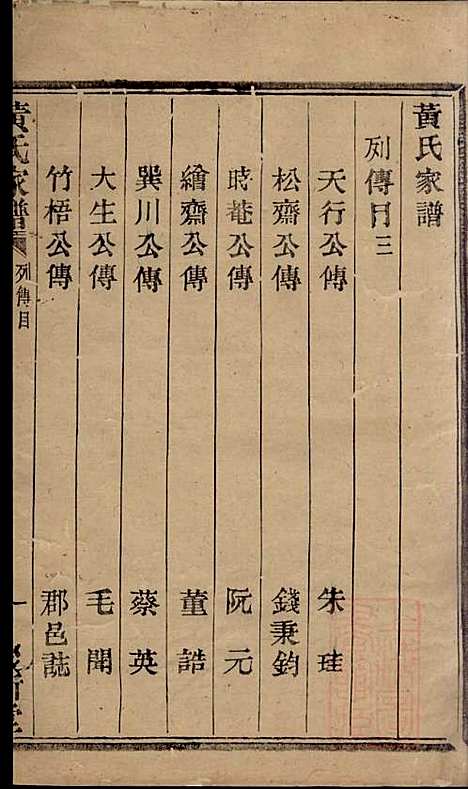 黃氏家譜
列傳目三
天行公傳 朱珪
松齋公傳 錢秉鈞
時菴公傳 阮元
繪齋公傳 董誥
巽川公傳 蔡英
大生公傳 毛開
竹梧公傳 郡邑誌
黃氏家譜 列傳目 一